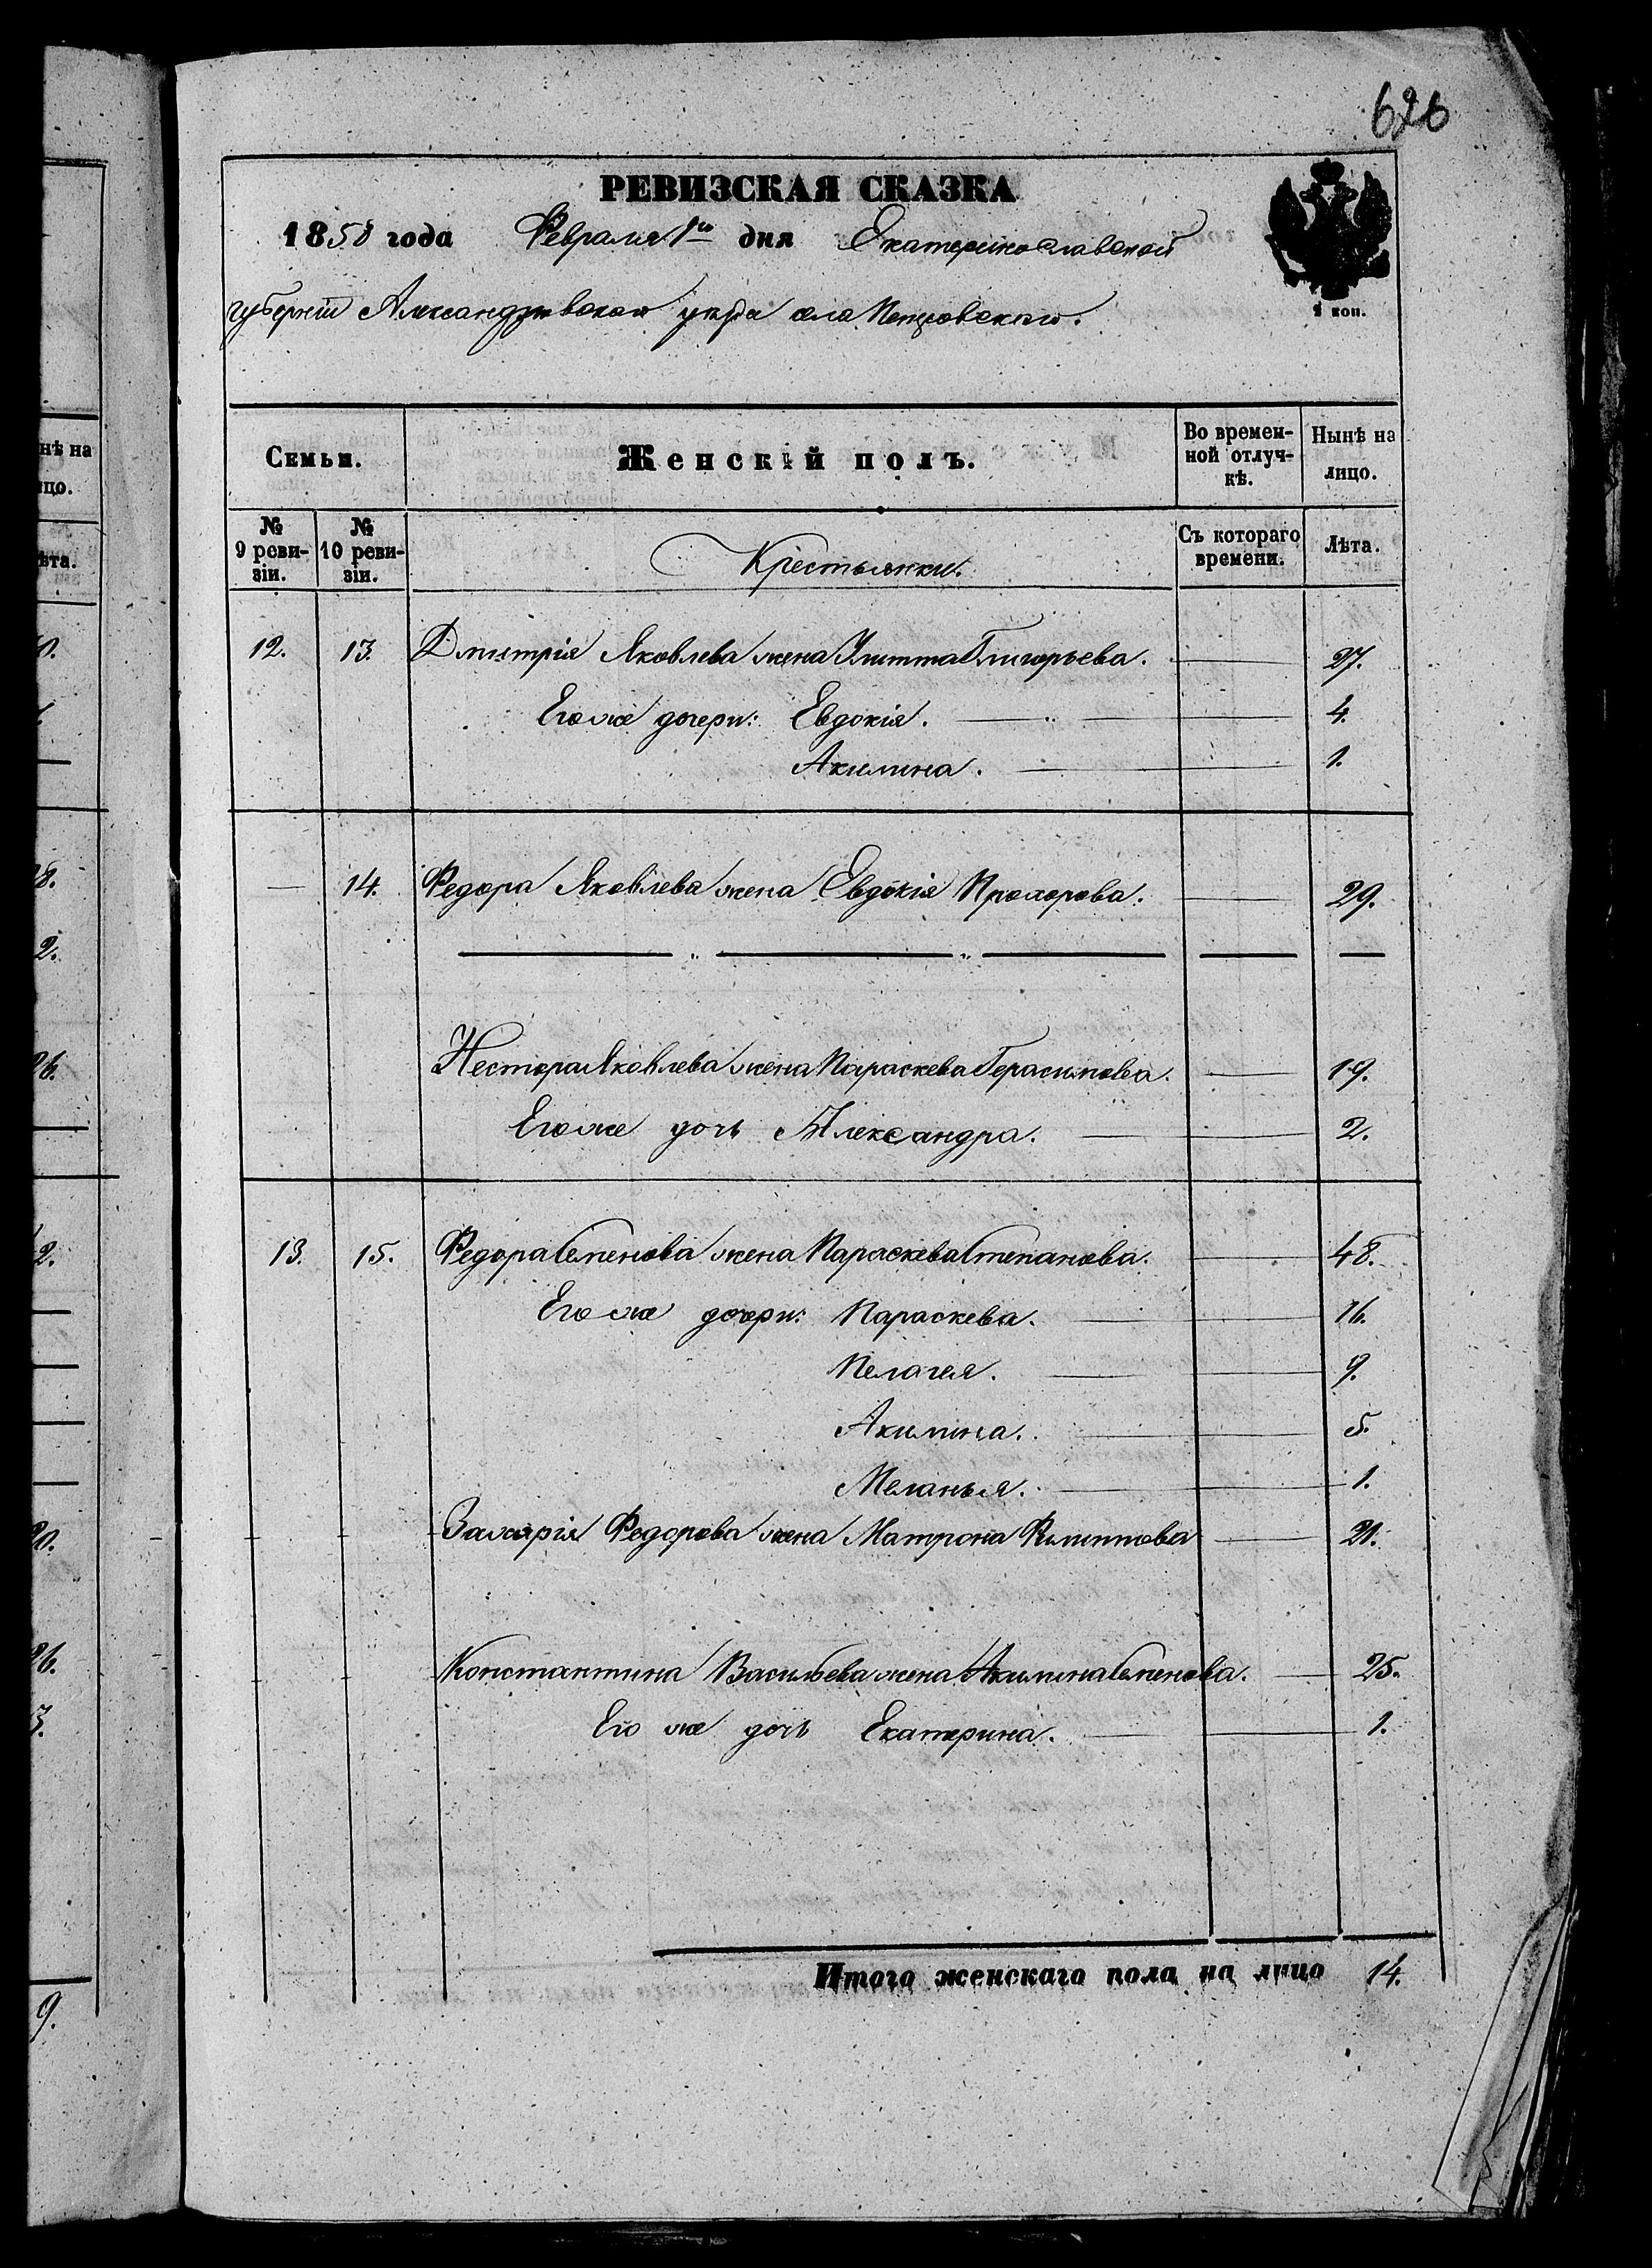 626
РЕВИЗСКАЯ СКАЗКА
1858 года Февраля 1го дня Екатеринославской
губерніи Александровскаго уѣзда села Петровскаго.
1 коп.
Семьи. Женскій полъ. Во времен-ной отлуч-кѣ. Нынѣ на лицо.
№ 9 реви-зіи. № 10 реви-зіи. Крестьянки. Съ котораго времени. Лѣта.
12. 13. Дмитрія Яковлева жена Улитта Григорьева. 27.
Его же дочери: Евдокія. 4.
Акилина. 1.
14. Федора Яковлева жена Евдокія Прохорова. 29.
Нестора Яковлева жена Параскева Герасимова. 19.
Его же дочь Александра. 2.
13. 15. Федора Семенова жена Параскева Степанова. 48.
Его же дочери: Параскева. 16.
Пелагея. 9.
Акилина. 5.
Меланья. 1.
Захарія Федорова жена Матрона Филиппова 21.
Константина Васильева жена Акилина Семенова. 25.
Его же дочь Екатерина. 1.
Итого женскаго пола на лицо 14.
нѣ на
ицо.
ѣта.
8.
2.
26.
2.
20.
26.
3.
9.